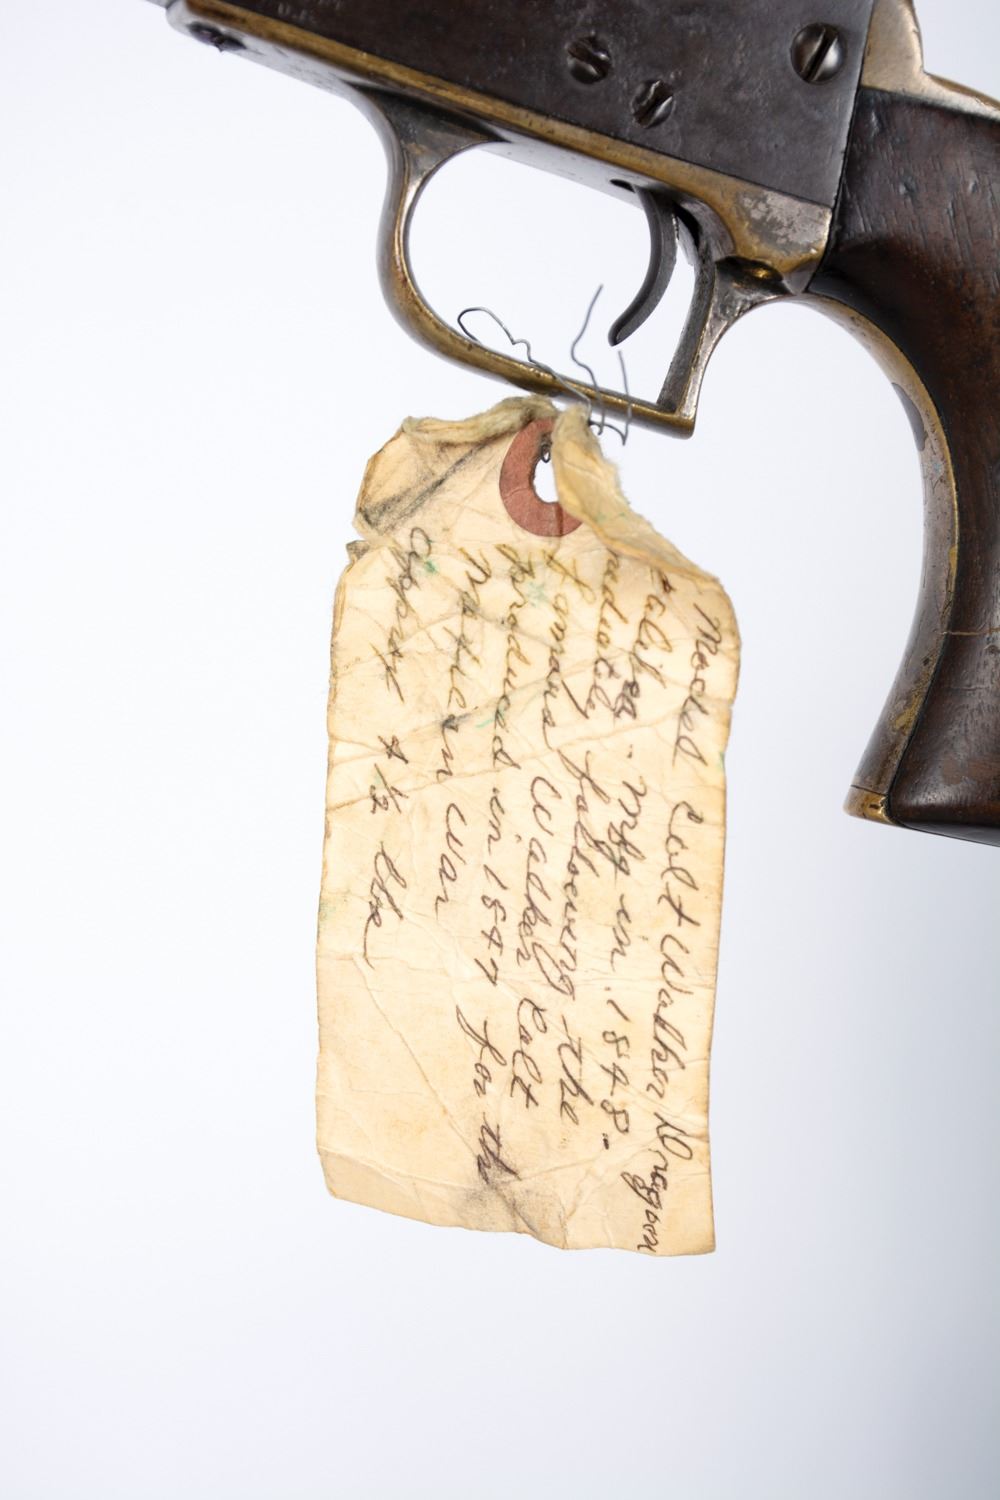 Model Colt Walker Dragoon
Caliber Mfg in 1848.
diately following the
famous Walker Colt
produced in 1847 for th
Mexican War
Apprx 4 1/2 lbs